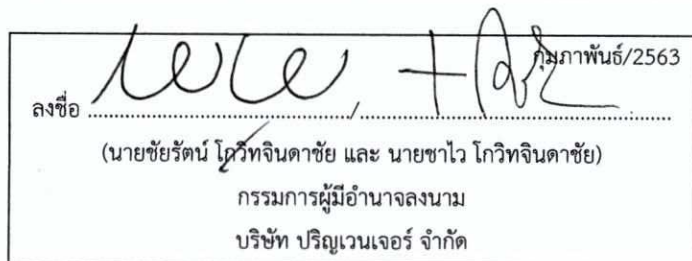 กุมภาพันธ์/2563
ลงชื่อ ........................................./.........................................
(นายชัยรัตน์ โกวิทจินดาชัย และ นายชาไว โกวิทจินดาชัย)
กรรมการผู้มีอำนาจลงนาม
บริษัท ปริญเวนเจอร์ จำกัด